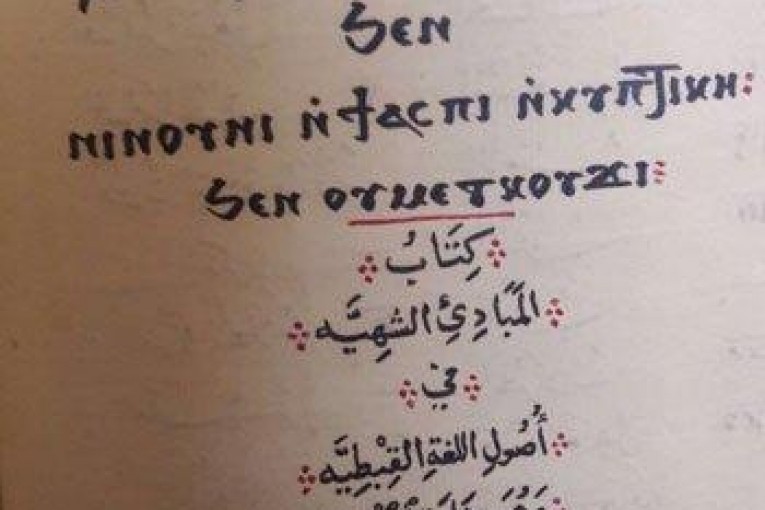 ϧⲉⲛ
ⲛⲓⲛⲟⲩⲛⲓ ⲛ̇ϯⲁⲥⲡⲓ ⲛ̇ⲕⲩⲡϯⲓⲕⲏ:
ϧⲉⲛ ⲟⲩⲙⲉⲧⲕⲟⲩϫⲓ:
كِتَابُ
المَبَادِئِ الشهِيَّه
في
أُصُولِ اللغةِ القِبْطِيَّه